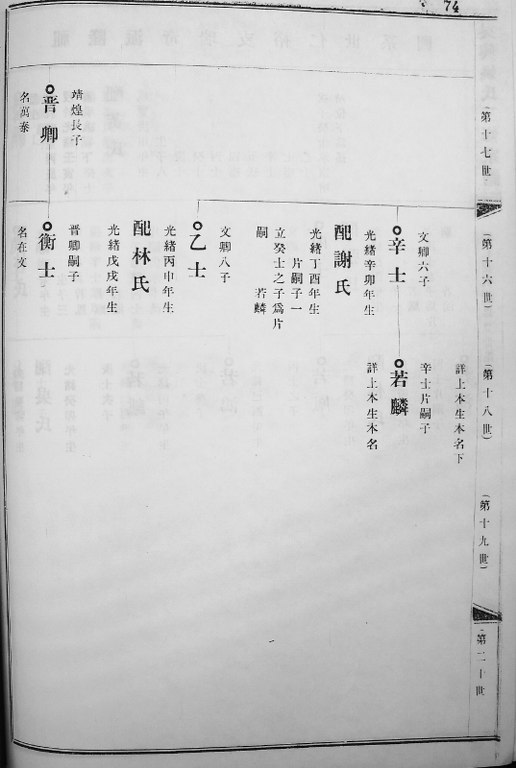 74
(第十七世)
(第十六世)
(第十八世)
(第十九世)
第二十世
詳上本生本名下
文卿六子
辛士
光緒辛卯年生
配謝氏
光緒丁酉年生
片嗣子一
立癸士之子爲片
嗣 若麟
辛士片嗣子
若麟
詳上本生本名
文卿八子
乙士
光緒丙申年生
配林氏
光緒戊戌年生
靖煌長子
晋卿
名萬泰
晉卿嗣子
衡士
名在文